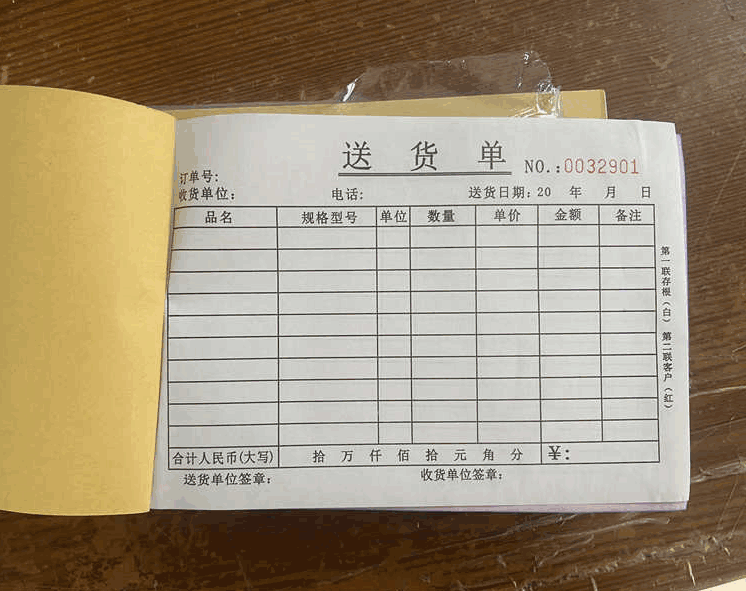 送货单 NO.:0032901
订单号:
收货单位: 电话: 送货日期:20 年 月 日
品名 规格型号 单位 数量 单价 金额 备注
合计人民币(大写) 拾 万 仟 佰 拾 元 角 分 ¥:
送货单位签章: 收货单位签章:
第一联存根(白) 第二联客户(红)